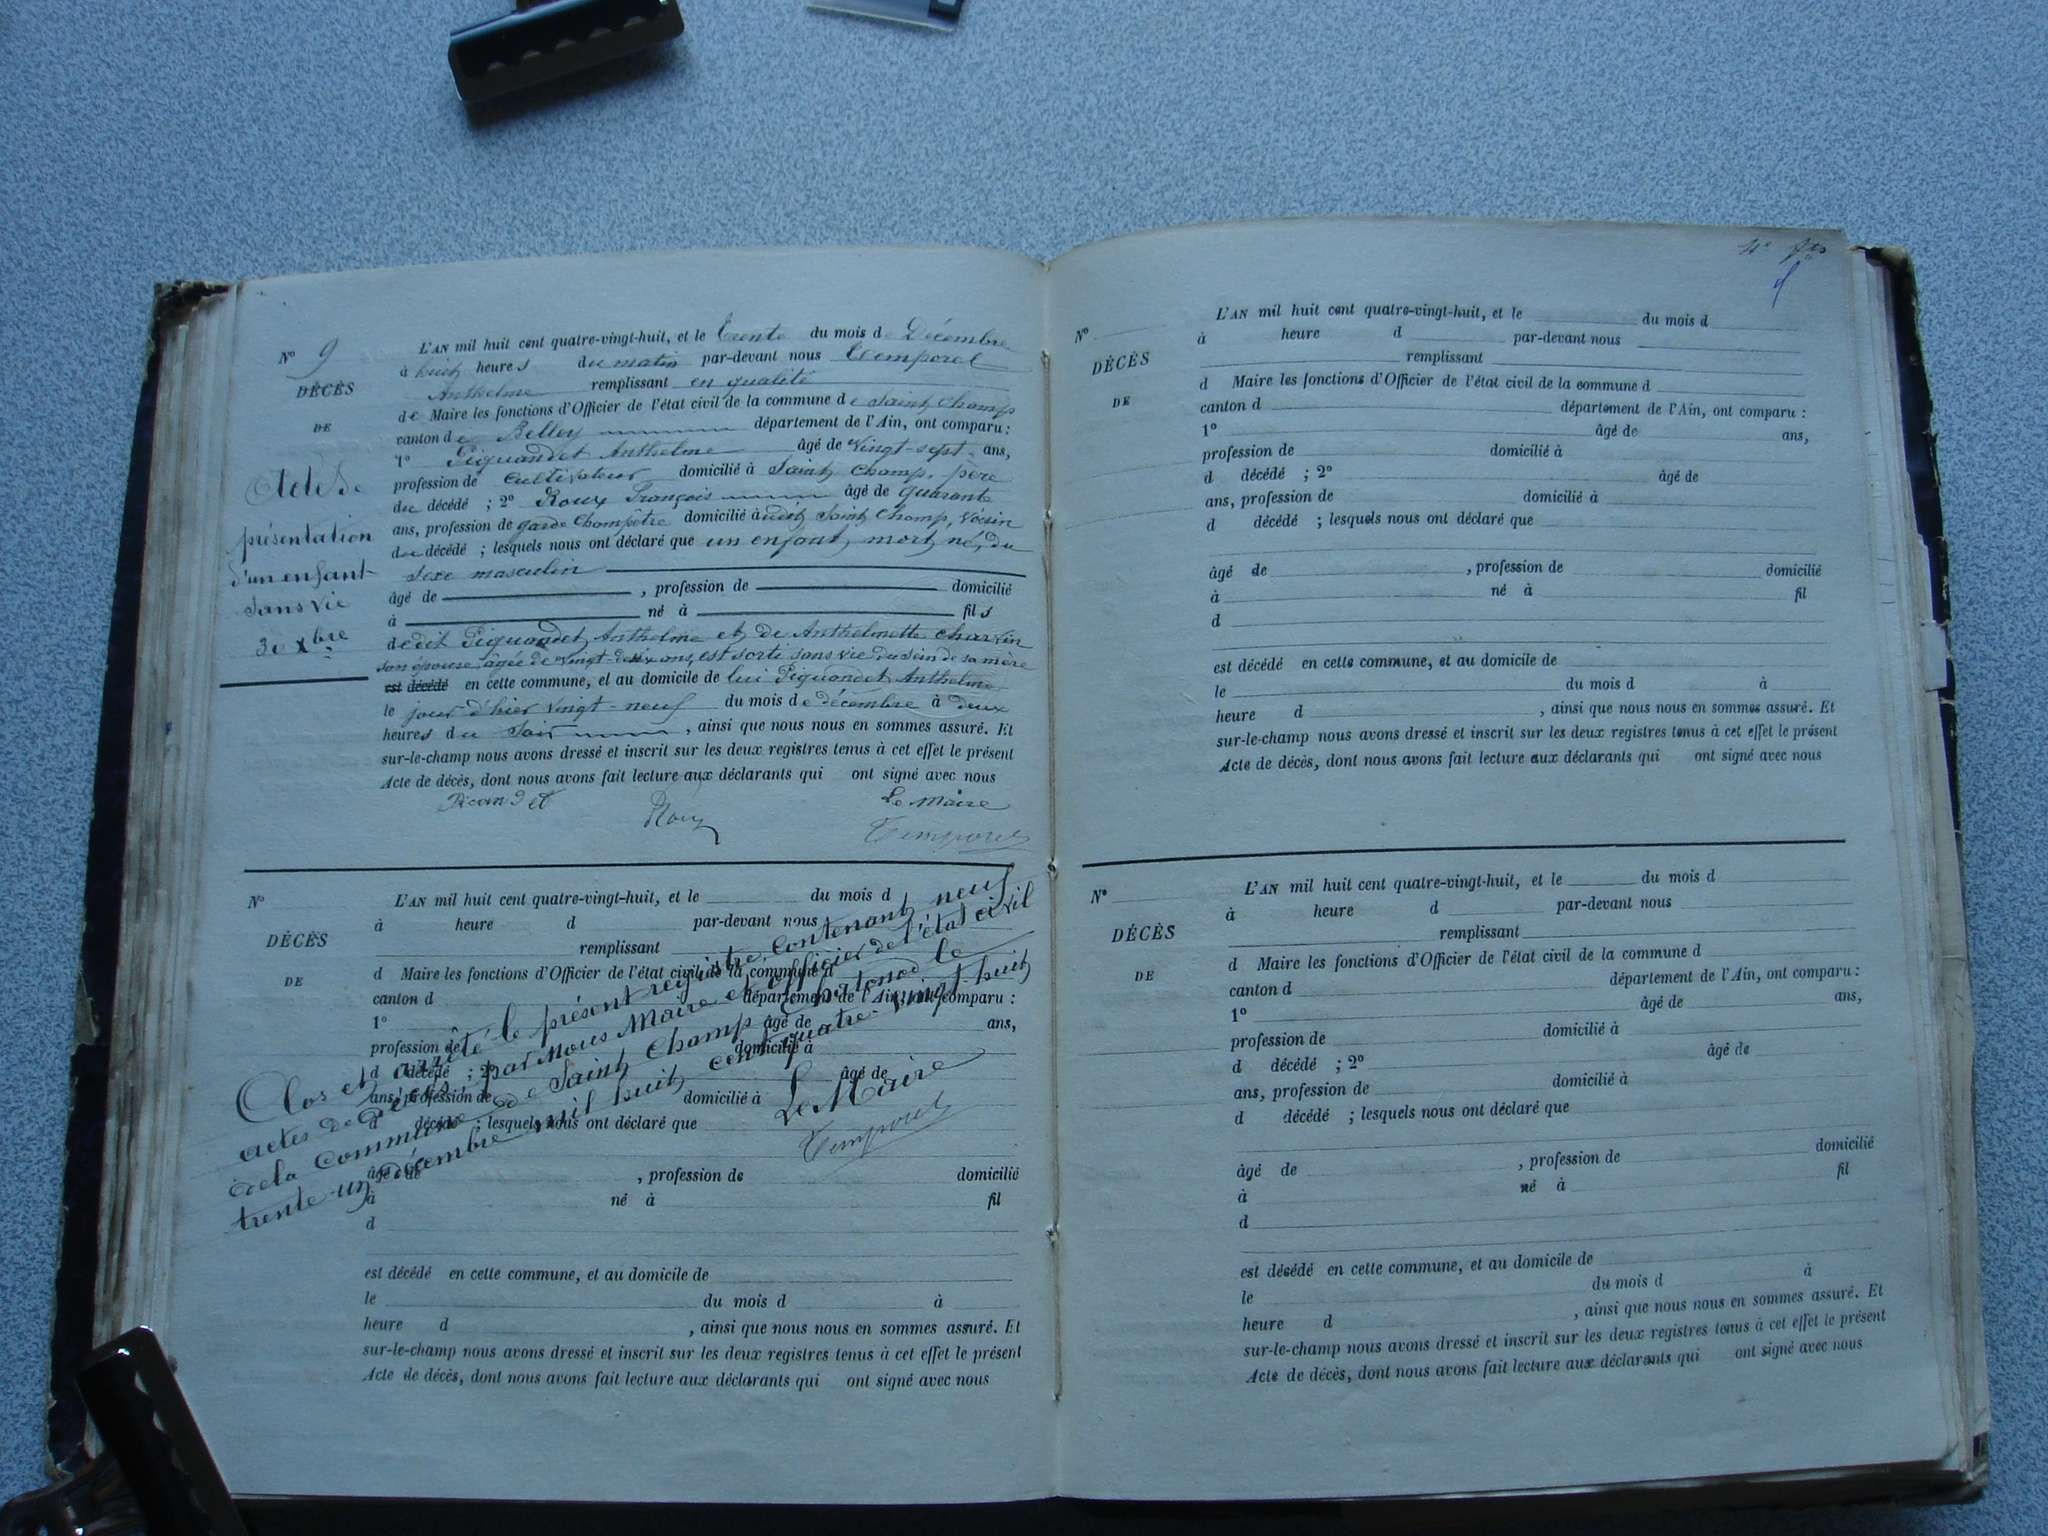 L'AN mil huit cent quatre-vingt-huit, et le trente du mois de Décembre
N° 9
à huit heures du matin par-devant nous Temporel
Anthelme remplissant en qualité
DÉCÈS
DE
de Maire les fonctions d'Officier de l'état civil de la commune de Saint Champ
canton de Belley département de l'Ain, ont comparu :
1° Piquandet Anthelme âgé de vingt-sept ans,
profession de cultivateur domicilié à Saint Champ, père
du décédé ; 2° Roux François âgé de quarante
ans, profession de garde Champêtre domicilié à udit Saint Champ, voisin
du décédé ; lesquels nous ont déclaré que un enfant mort né, du
sexe masculin
âgé de , profession de domicilié
à né à fils
dedit Piquandet Anthelme et de Anthelmette Charvin
son épouse, âgée de vingt-deux ans, est sorti sans vie du sein de sa mère
est décédé en cette commune, et au domicile de lui Piquandet Anthelme
le jour d'hier vingt-neuf du mois de décembre à deux
heures du soir , ainsi que nous nous en sommes assuré. Et
sur-le-champ nous avons dressé et inscrit sur les deux registres tenus à cet effet le présent
Acte de décès, dont nous avons fait lecture aux déclarants qui ont signé avec nous
Acte de
présentation
d'un enfant
sans vie
30 Xbre
Picandet Roux Le Maire
Temporel
N°
DÉCÈS
DE
L'AN mil huit cent quatre-vingt-huit, et le du mois d
à heure d par-devant nous
remplissant
d Maire les fonctions d'Officier de l'état civil de la commune d
canton d département de l'Ain, ont comparu :
1° âgé de ans,
profession de domicilié à
d décédé ; 2° âgé de
ans, profession de domicilié à
d décédé ; lesquels nous ont déclaré que
âgé de , profession de domicilié
à né à fil
d
est décédé en cette commune, et au domicile de
le du mois d à
heure d , ainsi que nous nous en sommes assuré. Et
sur-le-champ nous avons dressé et inscrit sur les deux registres tenus à cet effet le présent
Acte de décès, dont nous avons fait lecture aux déclarants qui ont signé avec nous
Clos et arrêté le présent registre, contenant neuf
actes de Décès, par Nous Maire et officier de l'état civil
de la Commune de Saint Champ Chatonod le
trente-un décembre mil huit cent quatre-vingt-huit
Le Maire
Temporel
N°
DÉCÈS
DE
L'AN mil huit cent quatre-vingt-huit, et le du mois d
à heure d par-devant nous
remplissant
d Maire les fonctions d'Officier de l'état civil de la commune d
canton d département de l'Ain, ont comparu :
1° âgé de ans,
profession de domicilié à
d décédé ; 2° âgé de
ans, profession de domicilié à
d décédé ; lesquels nous ont déclaré que
âgé de , profession de domicilié
à né à fil
d
est décédé en cette commune, et au domicile de
le du mois d à
heure d , ainsi que nous nous en sommes assuré. Et
sur-le-champ nous avons dressé et inscrit sur les deux registres tenus à cet effet le présent
Acte de décès, dont nous avons fait lecture aux déclarants qui ont signé avec nous
N°
DÉCÈS
DE
L'AN mil huit cent quatre-vingt-huit, et le du mois d
à heure d par-devant nous
remplissant
d Maire les fonctions d'Officier de l'état civil de la commune d
canton d département de l'Ain, ont comparu :
1° âgé de ans,
profession de domicilié à
d décédé ; 2° âgé de
ans, profession de domicilié à
d décédé ; lesquels nous ont déclaré que
âgé de , profession de domicilié
à né à fil
d
est décédé en cette commune, et au domicile de
le du mois d à
heure d , ainsi que nous nous en sommes assuré. Et
sur-le-champ nous avons dressé et inscrit sur les deux registres tenus à cet effet le présent
Acte de décès, dont nous avons fait lecture aux déclarants qui ont signé avec nous